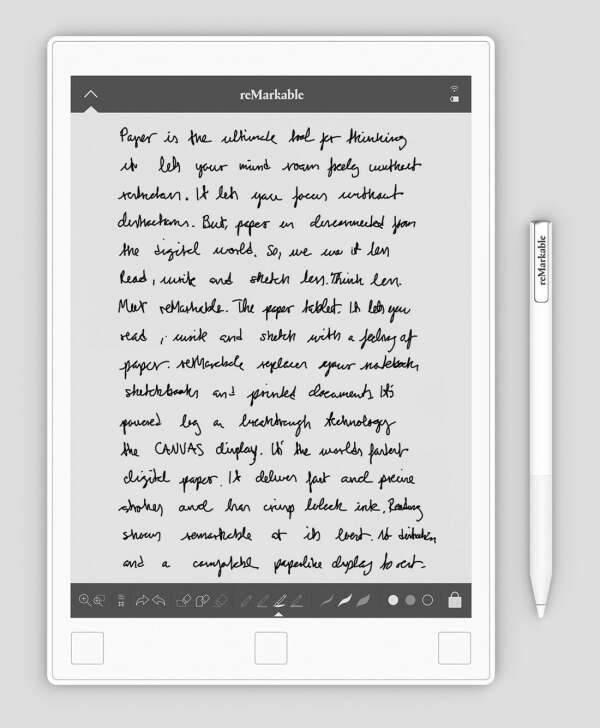 reMarkable
Paper is the ultimate tool for thinking
it lets your mind roam freely without
restrictions. It lets you focus without
distractions. But, paper is disconnected from
the digital world. So, we use it less
Read, write and sketch less. Think less.
Meet reMarkable. The paper tablet. It lets you
read, write and sketch with a feeling of
paper. reMarkable replaces your notebooks,
sketchbooks and printed documents. It's
powered by a breakthrough technology
the CANVAS display. It's the worlds fastest
digital paper. It delivers fast and precise
strokes and has crisp black ink. Reading
shows remarkable at its best. No distraction
and a comfortable paperlike display to rest.
reMarkable